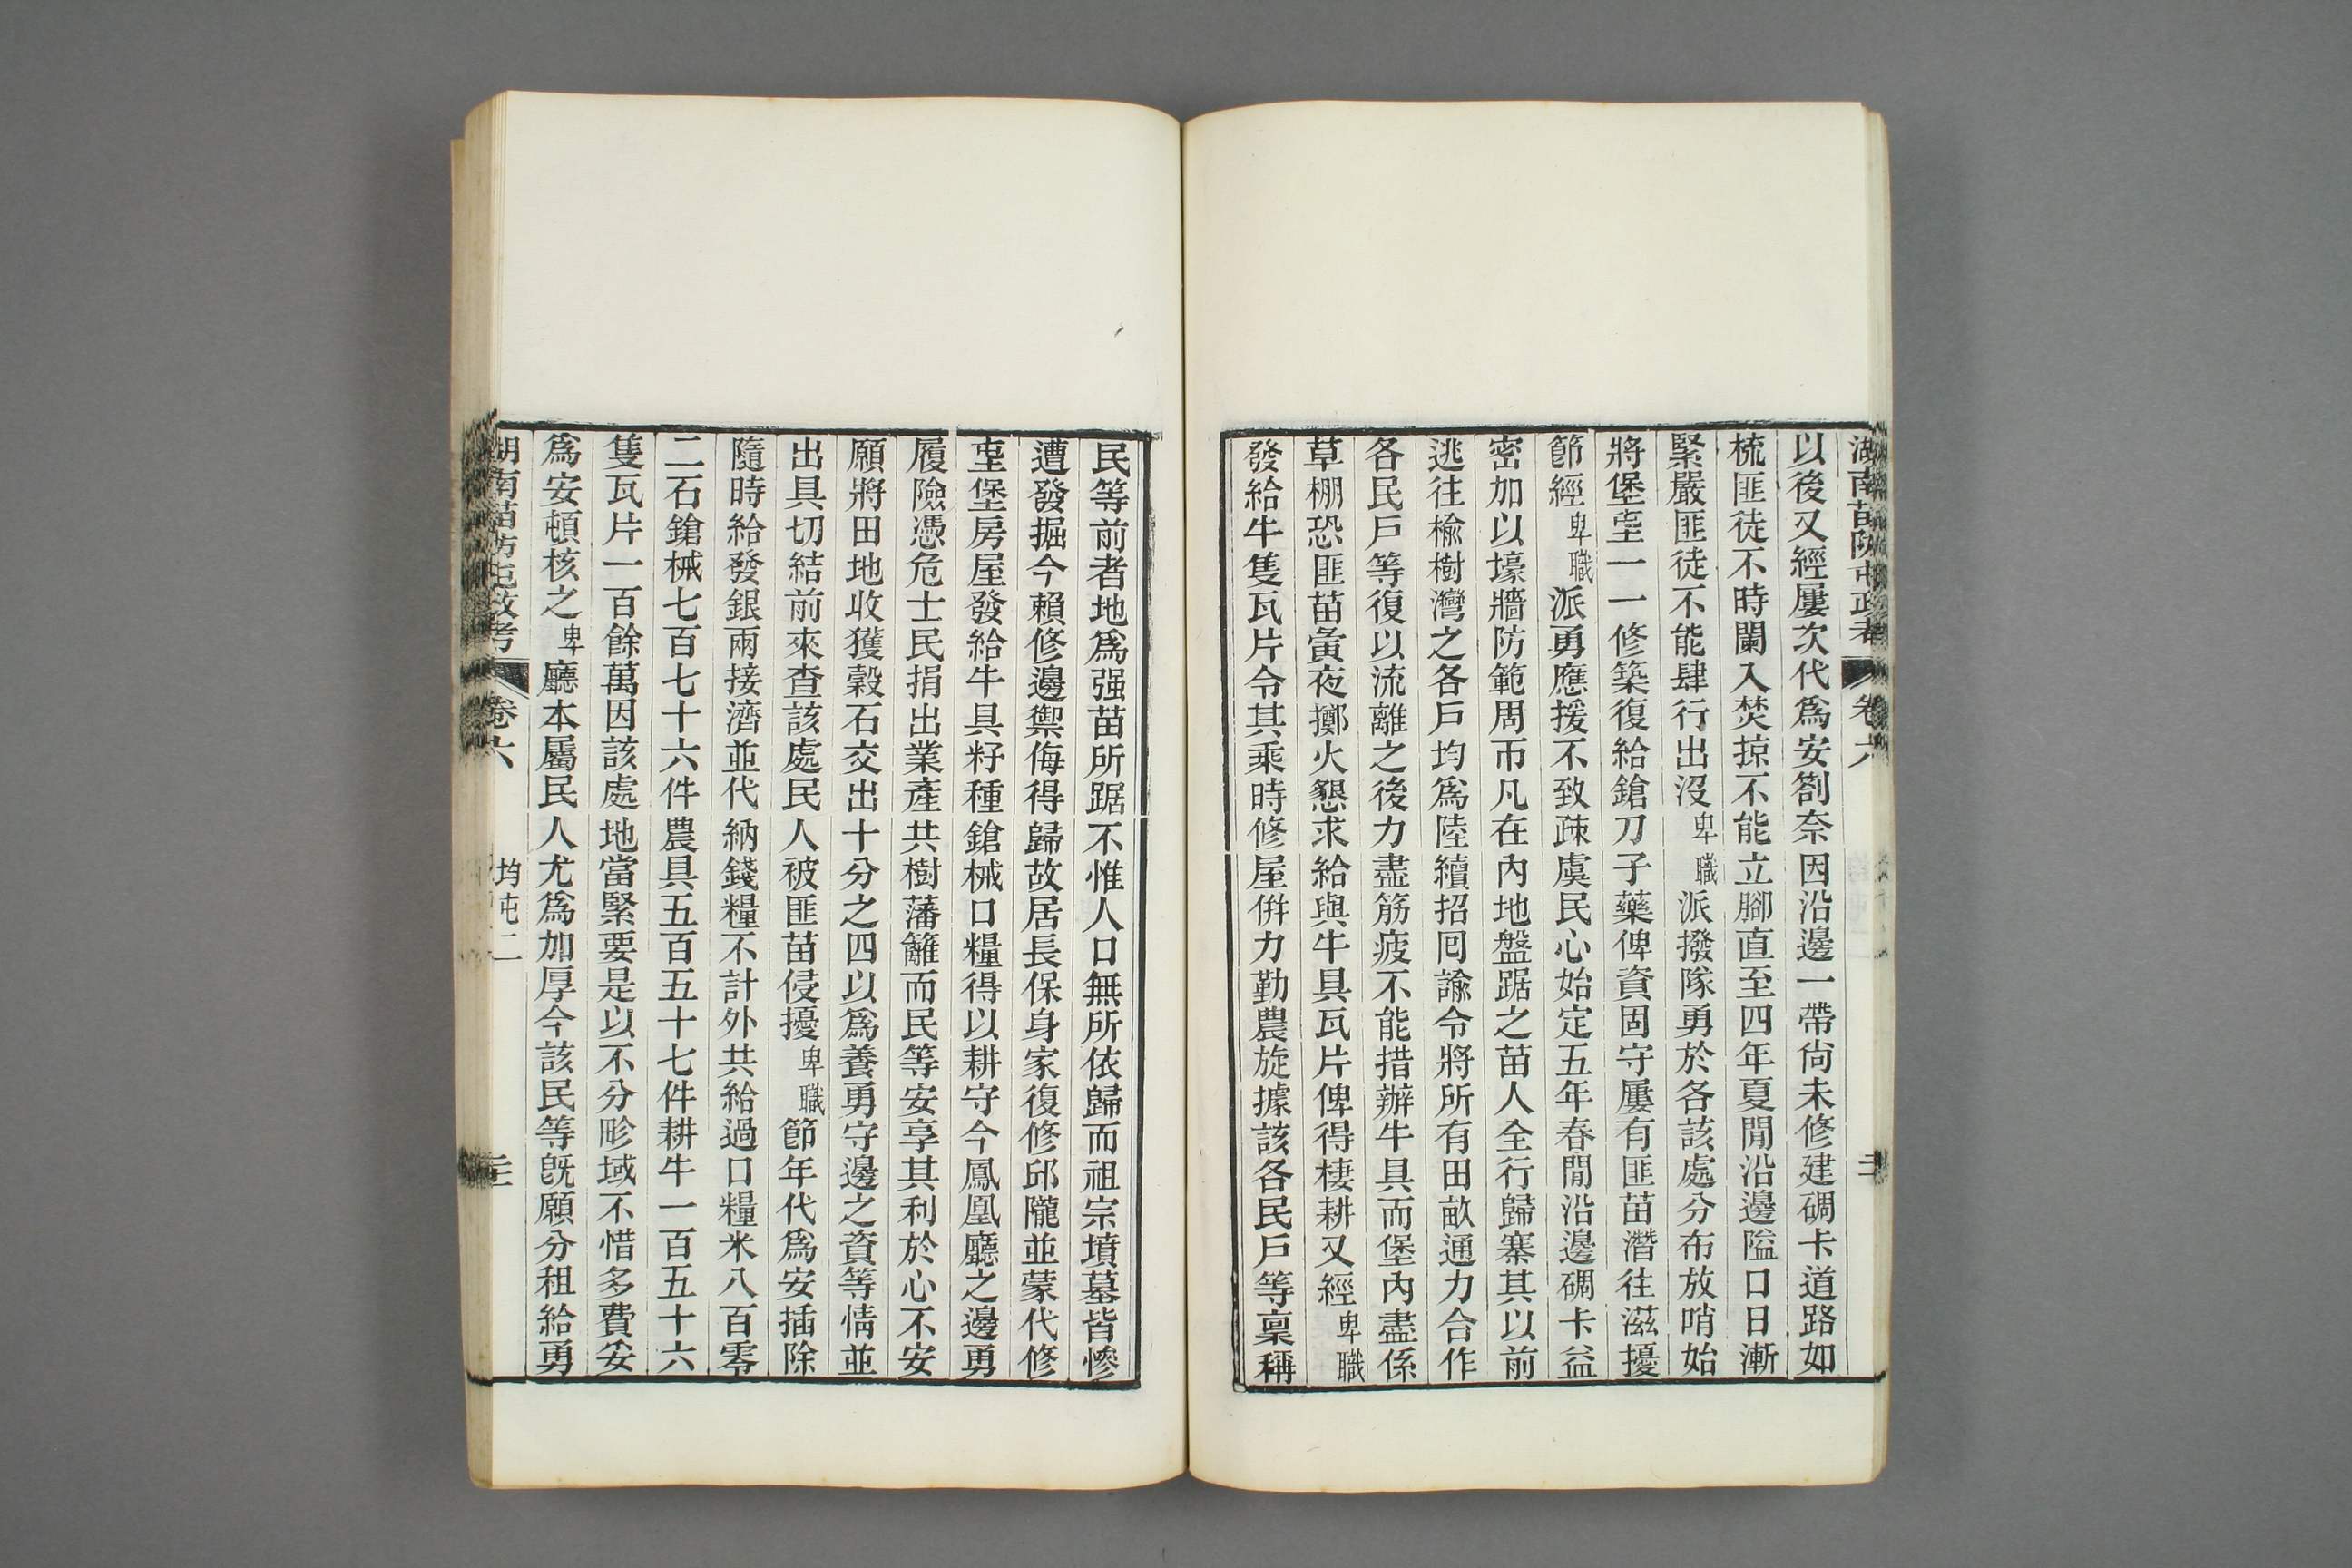 湖南苗防屯政考 卷六 二
以後又經屢次代爲安劄奈因沿邊一帶尙未修建碉卡道路如
梳匪徒不時闌入焚掠不能立腳直至四年夏閒沿邊隘口日漸
緊嚴匪徒不能肆行出沒卑職派撥隊勇於各該處分布放哨始
將堡壹一一修築復給鎗刀子藥俾資固守屢有匪苗潛往滋擾
節經卑職派勇應援不致疎虞民心始定五年春閒沿邊碉卡益
密加以壕牆防範周帀凡在內地盤踞之苗人全行歸寨其以前
逃往榆樹灣之各戶均爲陸續招囘諭令將所有田畝通力合作
各民戶等復以流離之後力盡筋疲不能措辦牛具而堡內盡係
草棚恐匪苗夤夜擲火懇求給與牛具瓦片俾得棲耕又經卑職
發給牛隻瓦片令其乘時修屋倂力勤農旋據該各民戶等稟稱
民等前者地爲强苗所踞不惟人口無所依歸而祖宗墳墓皆慘
遭發掘今賴修邊禦侮得歸故居長保身家復修邱隴並蒙代修
壹堡房屋發給牛具籽種鎗械口糧得以耕守今鳳凰廳之邊勇
履險憑危士民捐出業產共樹藩籬而民等安享其利於心不安
願將田地收獲穀石交出十分之四以爲養勇守邊之資等情並
出具切結前來查該處民人被匪苗侵擾卑職節年代爲安插除
隨時給發銀兩接濟並代納錢糧不計外共給過口糧米八百零
二石鎗械七百七十六件農具五百五十七件耕牛一百五十六
隻瓦片一百餘萬因該處地當緊要是以不分畛域不惜多費妥
爲安頓核之卑廳本屬民人尤爲加厚今該民等旣願分租給勇
湖南苗防屯政考 卷六 均屯二 三